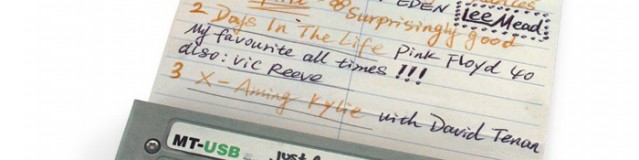 EDEN Lee Mead
Surprisingly good
2 Days In The Life Pink Floyd 40
My favourite all times !!!
also: Vic Reeve
3 X-Aming Kylie with David Tenan
MT-USB just